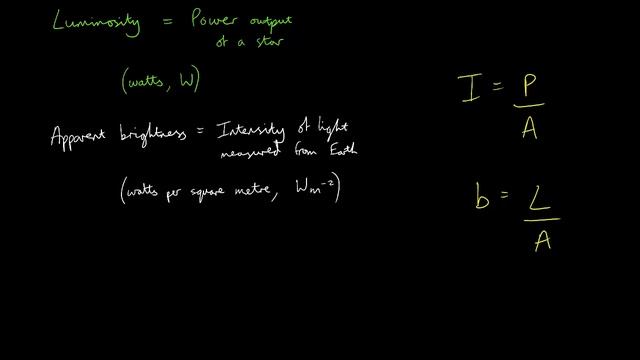 Luminosity = Power output
of a star
(watts, W)
Apparent brightness = Intensity of light
measured from Earth
(watts per square metre, Wm⁻²)
I = P
A
b = L
A